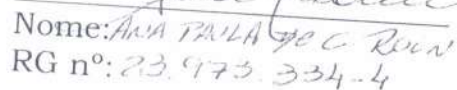 Nome: ANA PAULA DE C. ROLN
RG nº: 23.973.334-4